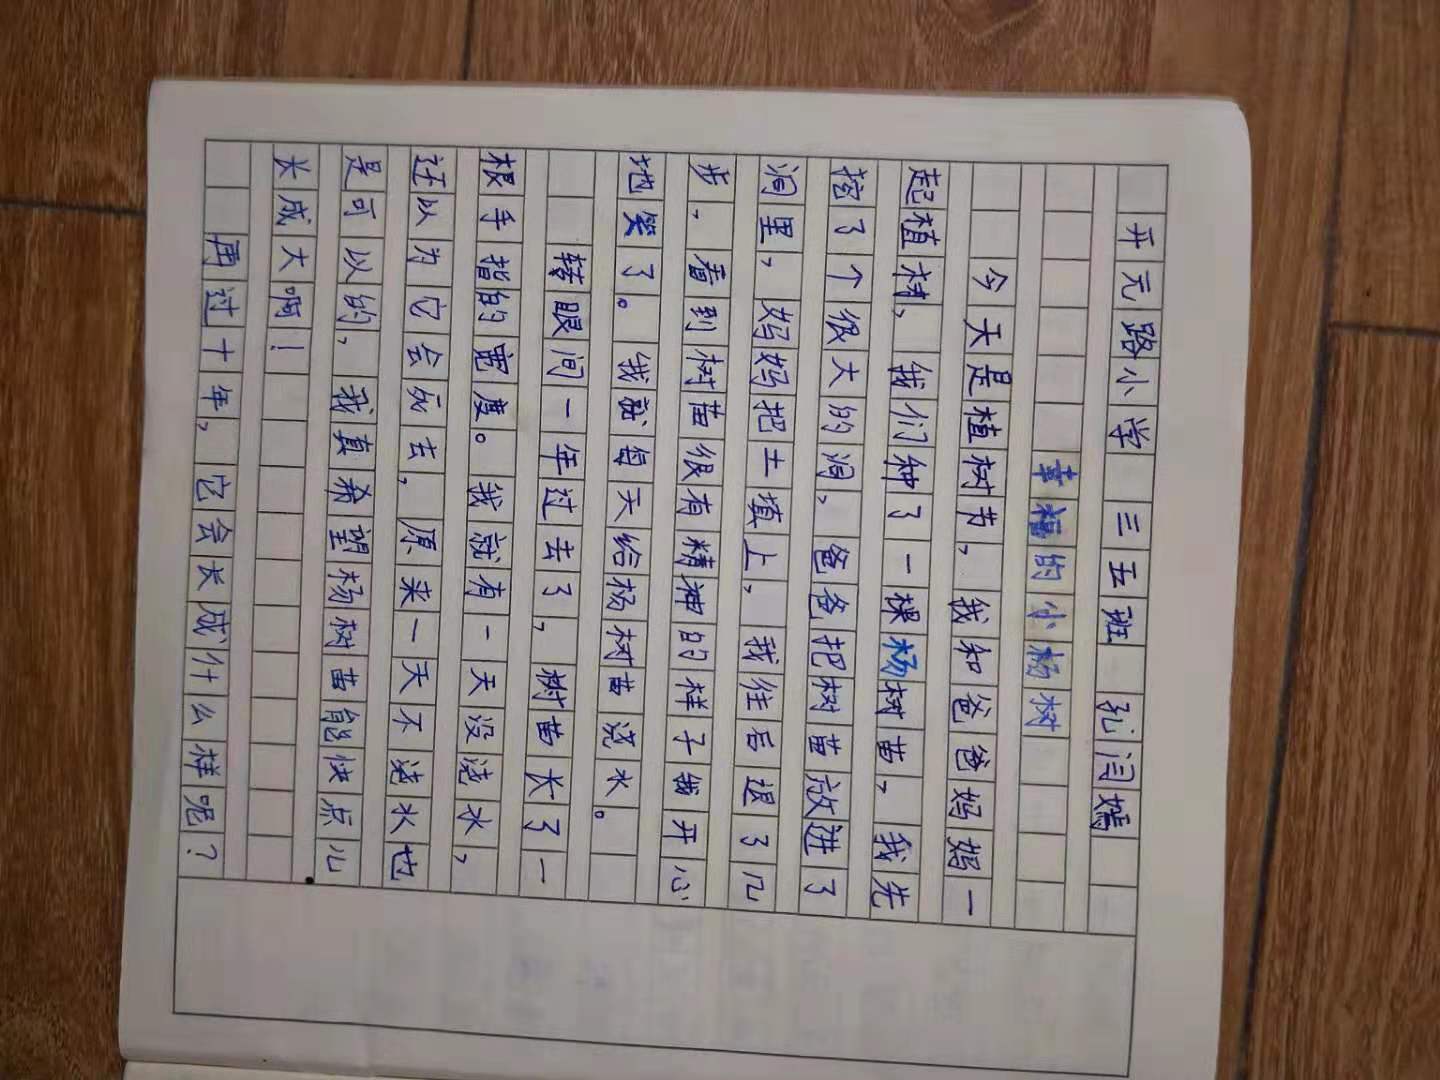 开元路小学 三五班 孔闫嫣
幸福的小杨树
今天是植树节，我和爸爸妈妈一
起植树，我们种了一棵杨树苗，我先
挖了个很大的洞，爸爸把树苗放进了
洞里，妈妈把土填上，我往后退了几
步，看到树苗很有精神的样子我开心
地笑了。我就每天给杨树苗浇水。
转眼间一年过去了，树苗长了一
根手指的宽度。我就有一天没浇水，
还以为它会死去，原来一天不浇水也
是可以的，我真希望杨树苗能快点儿
长成大啊！
再过十年，它会长成什么样呢？